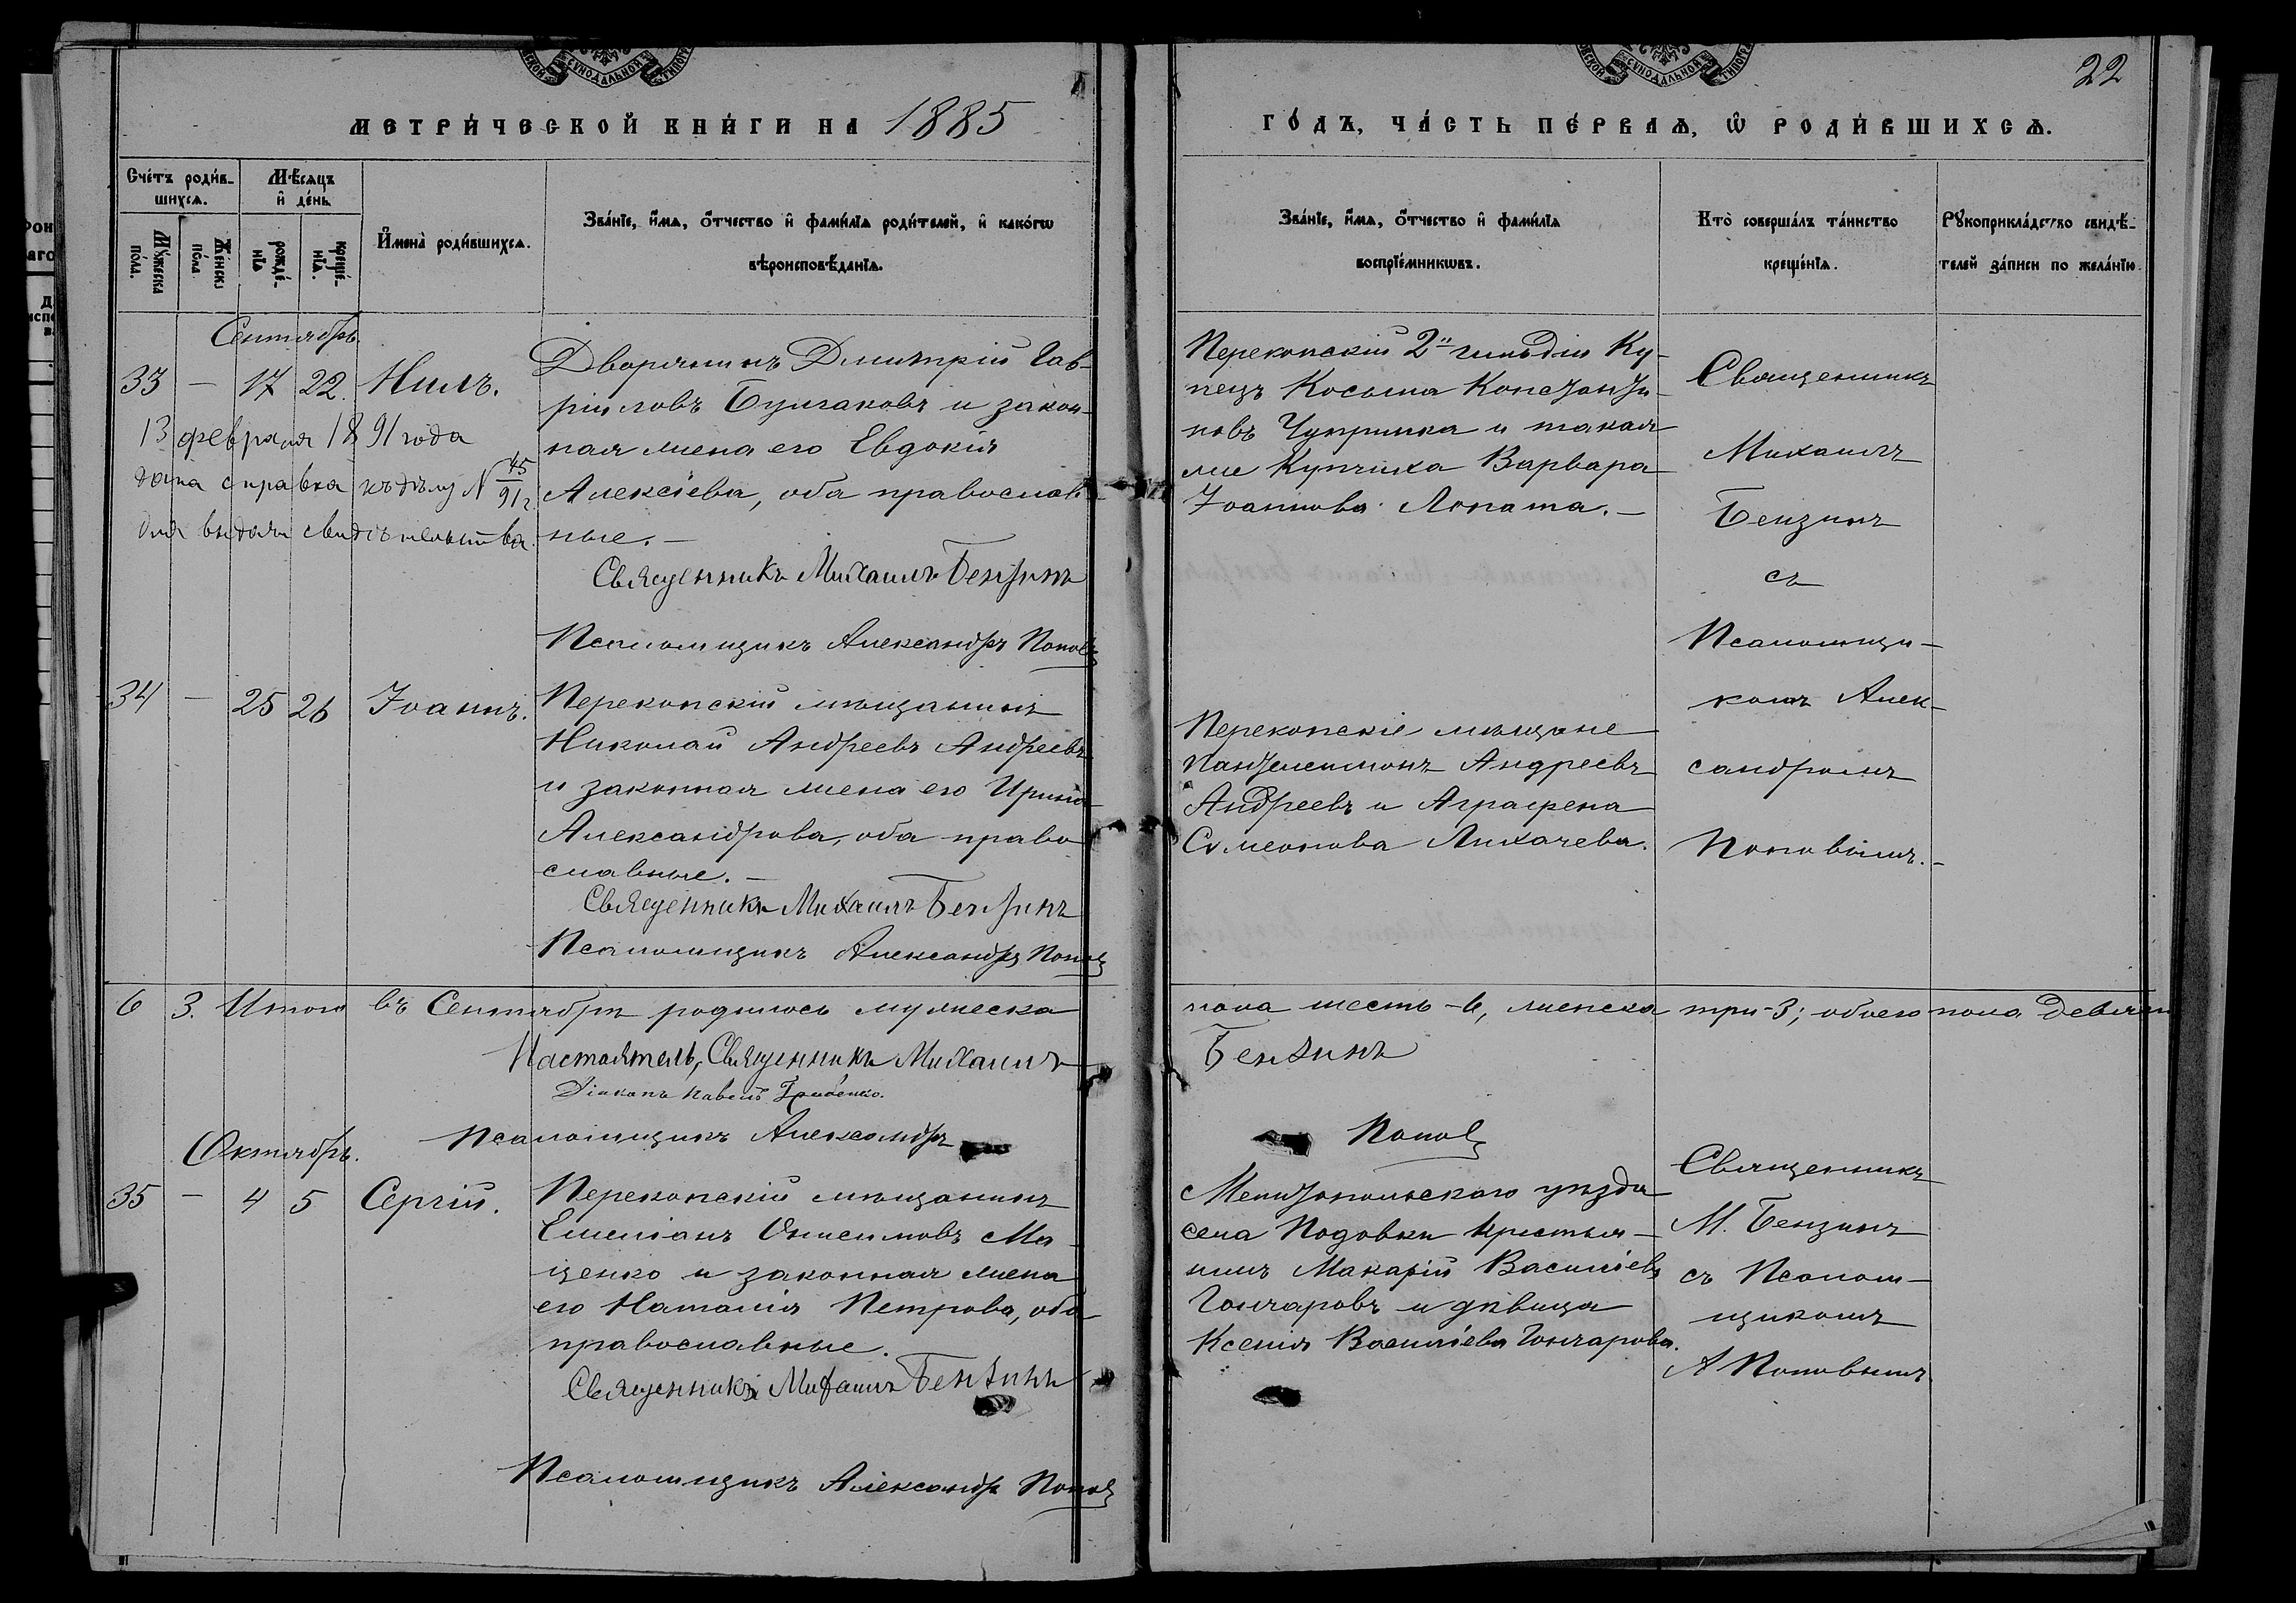 22
МЕТРИ́ЧЕСКОЙ КНИ́ГИ НА 1885
ГО́ДЪ, ЧА́СТЬ ПЕ́РВАѦ, Ѿ РОДИ́ВШИХСѦ.
Сче́тъ роди́в-
шихсѧ.
Мѣ́сѧцъ
и҆ де́нь
Мꙋ́жеска
по́ла.
Же́нска
по́ла.
рожде́-
нїѧ
креще́-
нїѧ.
И҆мена̀ роди́вшихсѧ.
Зва́нїе, и҆́мѧ, ѻ҆́тчество и҆ фами́лїѧ роди́телей, и҆ како́гѡ
вѣроисповѣ́данїѧ.
Зва́нїе, и҆́мѧ, ѻ҆́тчество и҆ фами́лїѧ
воспрїе́мникѡвъ.
Кто̀ соверша́лъ та́инство
креще́нїѧ.
Рꙋкоприкла́дство свидѣ́-
телей за́писи по жела́нїю.
Сентябрь
33 — 17 22. Нилъ.
13 февраля 1891 года
дана справка къ дѣлу N 45/91 г.
для выдачи свидѣтельства.
Дворянинъ Дмитрій Гав-
ріиловъ Булгаковъ и закон-
ная жена его Евдокія
Алексіева, оба православ-
ные. —
Священникъ Михаилъ Бензинъ
Псаломщикъ Александръ Поповъ
Перекопскій 2й гильдіи Ку-
пецъ Косьма Константи-
новъ Чупринка и такая-
же Купчиха Варвара
Іоаннова Лопата. —
Священникъ
Михаилъ
Бензинъ
съ
Псаломщи-
комъ Алек-
сандромъ
Поповымъ. —
34 — 25 26 Іоаннъ.
Перекопскій мѣщанинъ
Николай Андреевъ Андреевъ
и законная жена его Ирина
Александрова, оба право
славные. —
Священникъ Михаилъ Бензинъ
Псаломщикъ Александръ Поповъ
Перекопскіе мѣщане
Пантелеимонъ Андреевъ
Андреевъ и Аграфена
Сѵмеонова Лихачева.
6 3. Итого въ Сентябрѣ родилось мужеска пола шесть - 6, женска три - 3; обоего пола девять
Настоятель, Священникъ Михаилъ Бензинъ
Діаконъ Павелъ Грабенко.
Псаломщикъ Александръ Поповъ
Октябрь.
35 — 4 5 Сергій.
Перекопскій мѣщанинъ
Емеліанъ Онисимовъ Ма-
ценко и законная жена
его Наталія Петрова, оба
православные.
Священникъ Михаилъ Бензинъ
Псаломщикъ Александръ Поповъ
Мелитопольскаго уѣзда
села Подовки крестья-
нинъ Макарій Василіевъ
Гончаровъ и дѣвица
Ксенія Василіева Гончарова.
Священникъ
М. Бензинъ
съ Псалом-
щикомъ
А Поповымъ